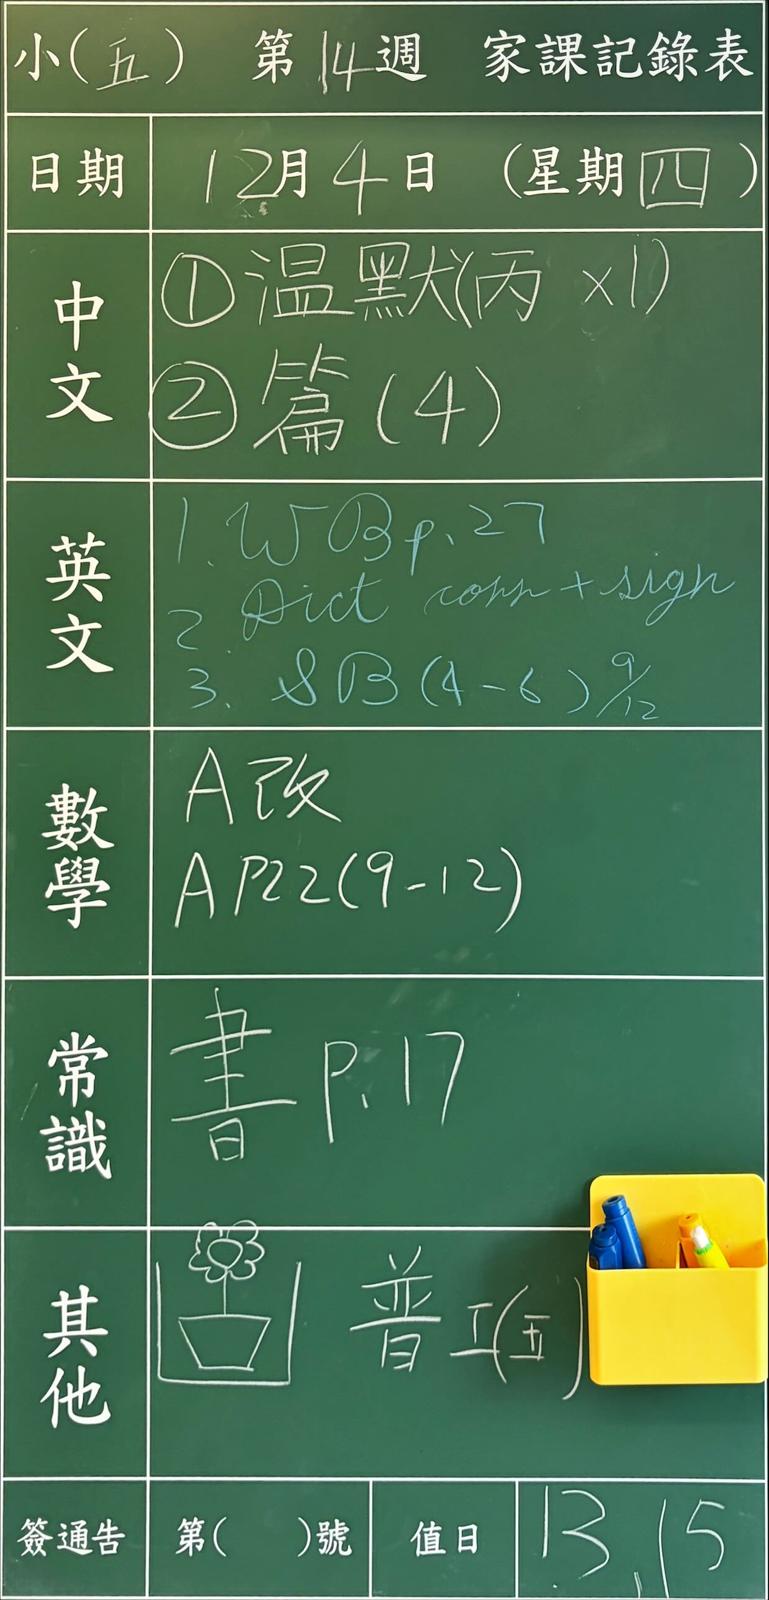 小(五) 第14週 家課記錄表
日期 12月4日 (星期四)
中文
①温默(丙 x1)
②篇(4)
英文
1. WB p.27
2. Dict corr + sign
3. SB (4-6) 9/12
數學
A改
A P22(9-12)
常識
書 p.17
其他
普工(五)
簽通告 第( )號 值日 13,15